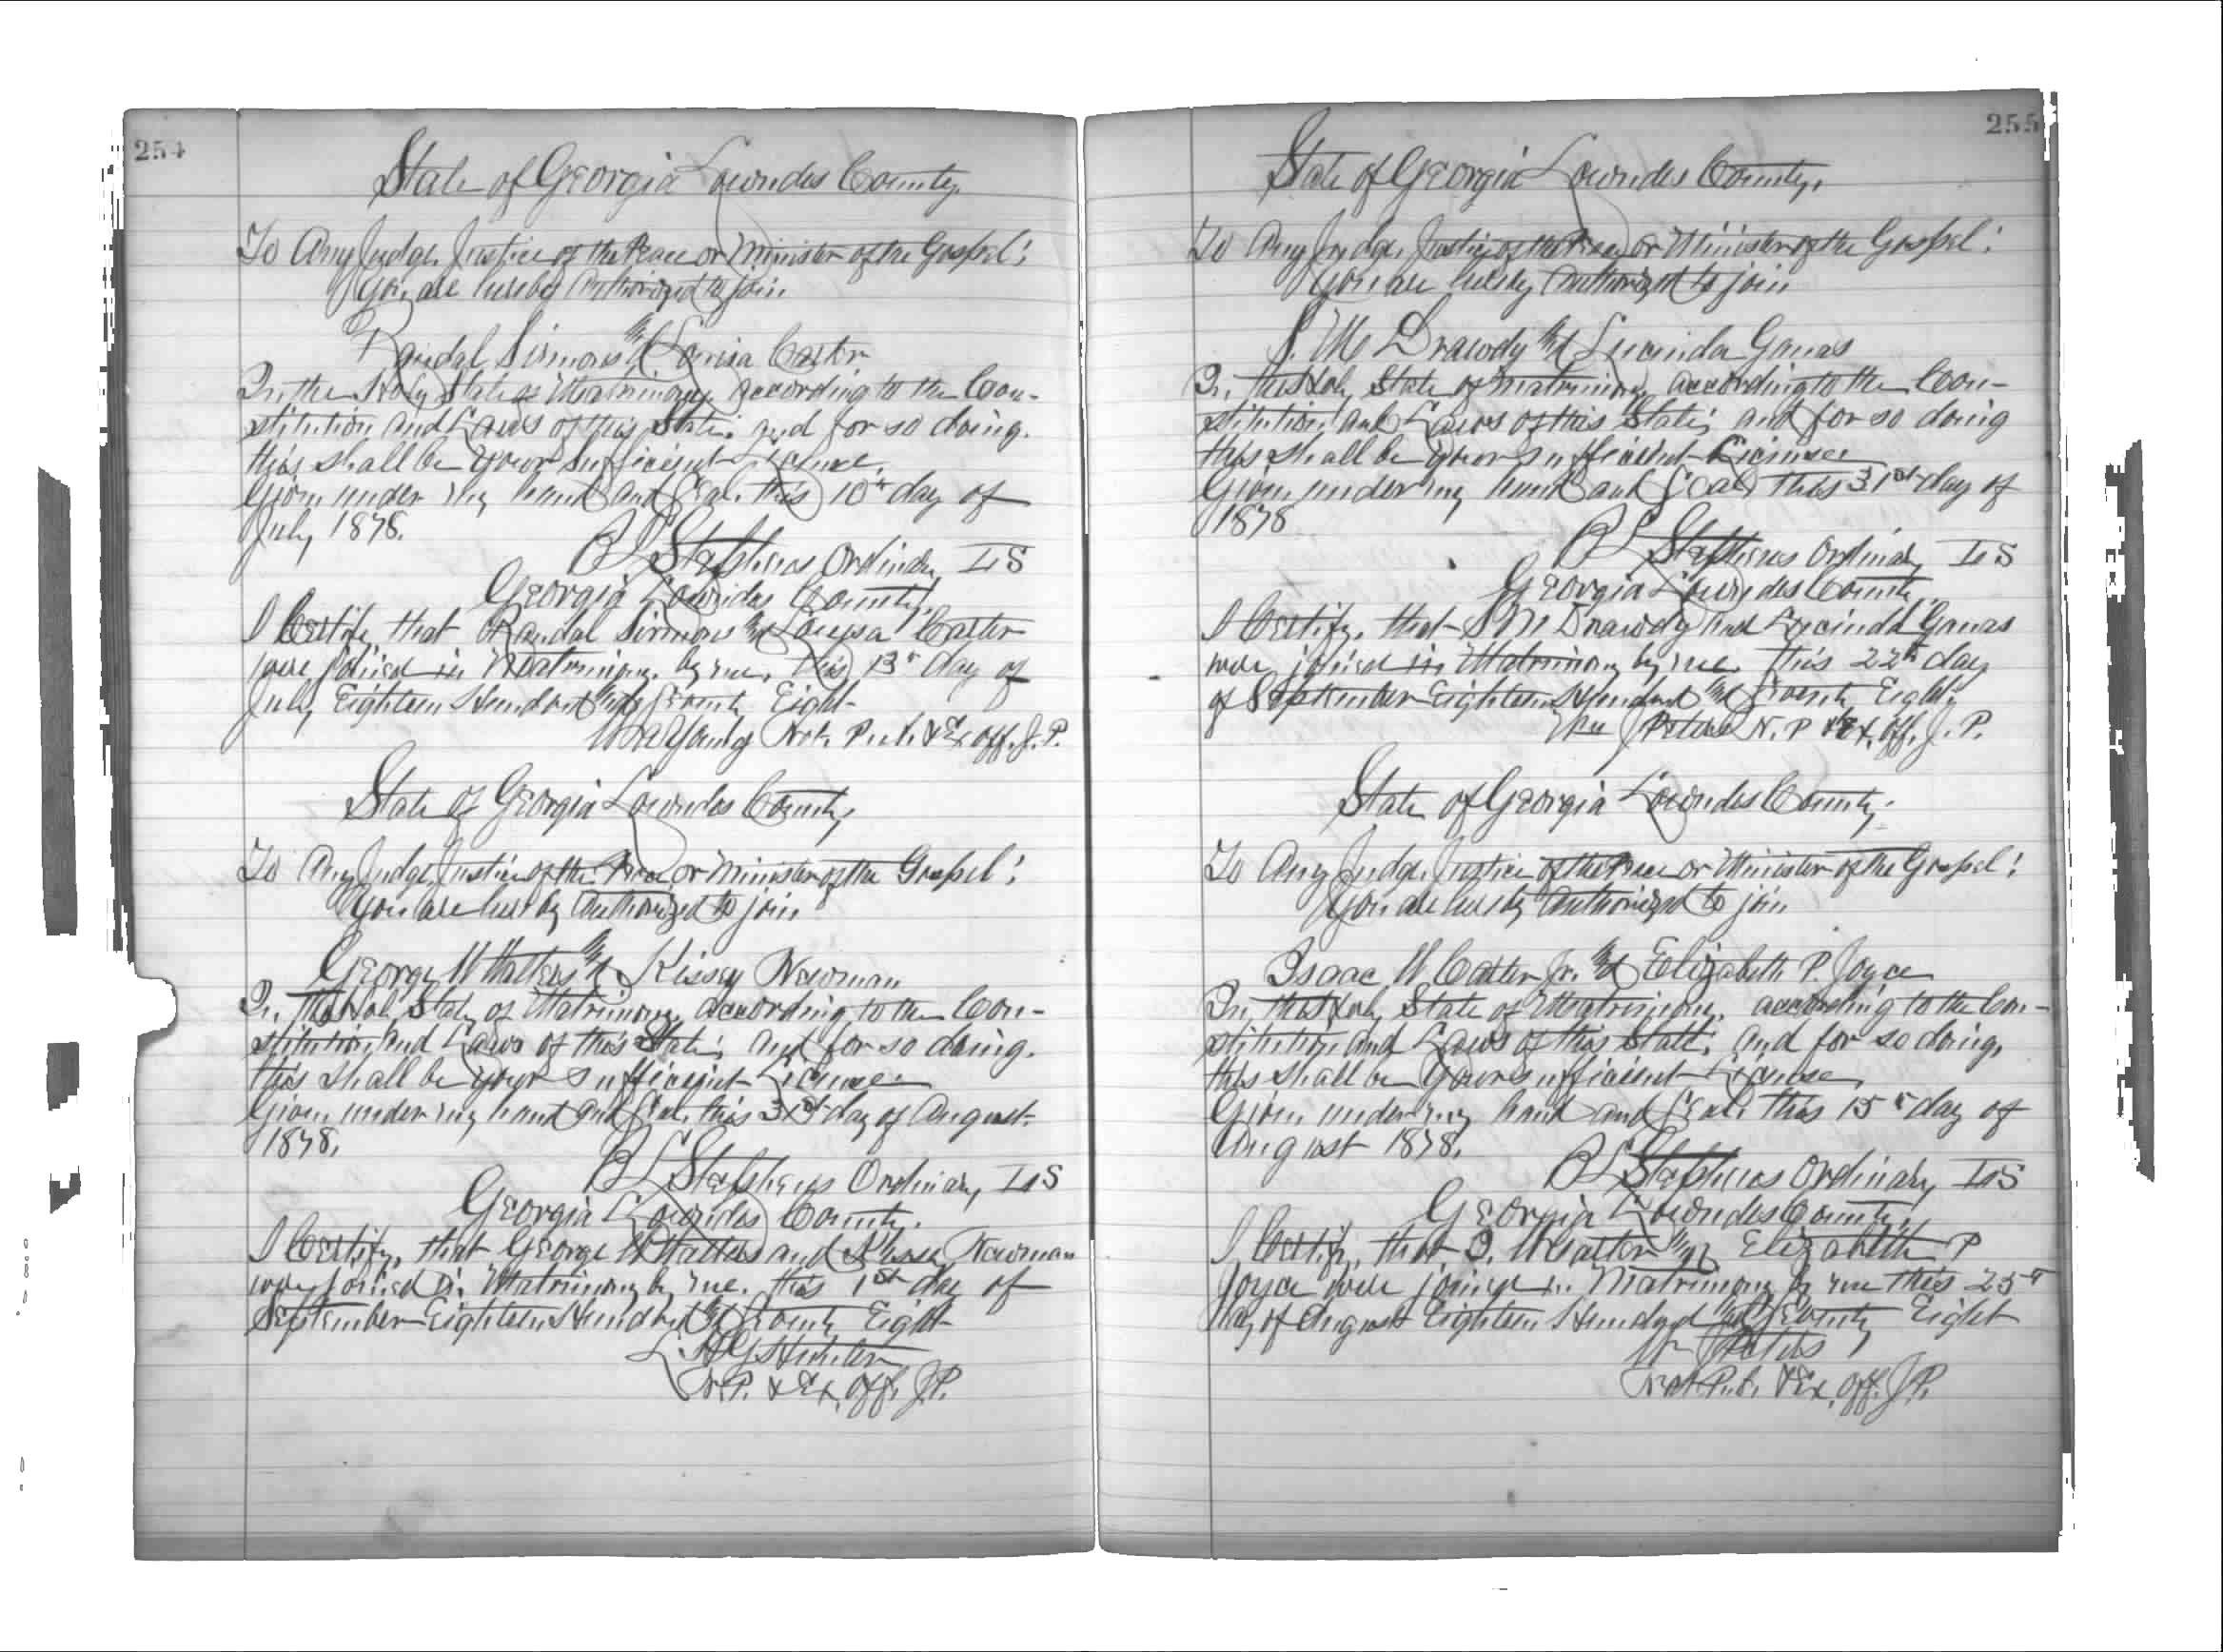 254
State of Georgia Lowndes County,
To Any Judge, Justice of the Peace or Minister of the Gospel:
You are hereby Authorized to join
Randal Sirmons and Louisa Carter
In the Holy State of Matrimony, according to the Con-
stitution and Laws of this State: and for so doing.
this shall be your sufficient License.
Given under my hand and Seal this 10th day of
July 1878.
Stephens Ordinary L S
Georgia Lowndes County,
I Certify, that Randal Sirmons and Louisa Carter
were joined in Matrimony by me, this 13th day of
July, Eighteen Hundred and Seventy Eight
Young Not. Pub. & Ex. Off. J. P.
State of Georgia Lowndes County,
To Any Judge, Justice of the Peace or Minister of the Gospel:
You are hereby Authorized to join
George W Walters and Kissey Newman
In the Holy State of Matrimony, according to the Con-
stitution and Laws of this State: and for so doing.
this shall be your sufficient License
Given under my hand and Seal this 31st day of August
1878.
Stephens Ordinary L S
Georgia Lowndes County.
I Certify, that George W Walters and Newman
were joined in Matrimony by me. this 1st day of
September Eighteen Hundred and Seventy Eight
N.P. & Ex. Off. J.P.
255
State of Georgia Lowndes County,
To Any Judge, Justice of the Peace or Minister of the Gospel:
You are hereby Authorized to join
S. M Drawdy and Lucinda Ganas
In the Holy State of Matrimony according to the Con-
stitution and Laws of this State; and for so doing
this shall be your sufficient License
Given under my hand and Seal this 31st day of
1878
Stephens Ordinary L S
Georgia Lowndes County
I Certify, that S M Drawdy and Lucinda Ganas
were joined in Matrimony by me. this 22th day
of September Eighteen Hundred and Seventy Eight
Wm Peters N. P & Ex. Off. J. P.
State of Georgia Lowndes County,
To Any Judge, Justice of the Peace or Minister of the Gospel:
You are hereby Authorized to join
Isaac W Carter Jr. and Elizabeth P. Joyce
In the Holy State of Matrimony, according to the Con-
stitution and Laws of this State: and for so doing,
this shall be your sufficient License
Given under my hand and Seal this 15th day of
August 1878.
Stephens Ordinary L S
Georgia Lowndes County,
I Certify, that I. W Carter and Elizabeth P
Joyce were joined in Matrimony by me this 25th
day of August Eighteen Hundred and Seventy Eight
Wm Peters
Not. Pub. & Ex. Off. J.P.